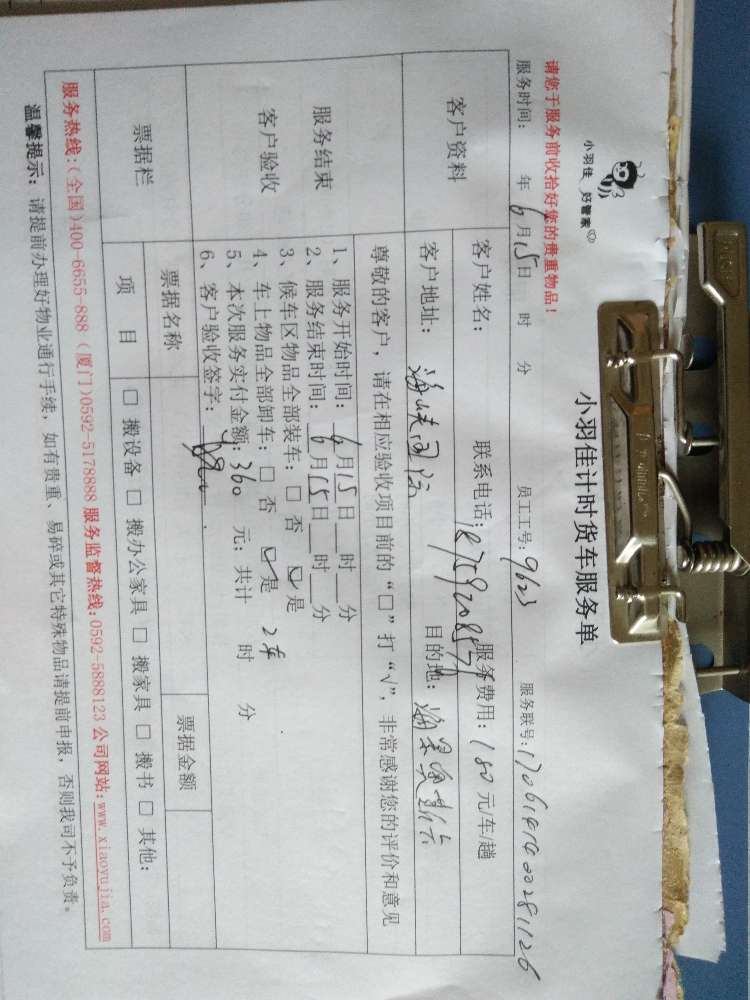 小羽佳 好管家
小羽佳计时货车服务单
请您于服务前收拾好您的贵重物品！
服务时间： 年 6月15日 时 分 员工工号：9623 服务联号：
客户资料
客户姓名： 联系电话： 服务费用：180 元车/趟
客户地址： 目的地：
服务结束
客户验收
尊敬的客户，请在相应验收项目前的“□”打“√”，非常感谢您的评价和意见
1、服务开始时间：6月15日 时 分
2、服务结束时间：6月15日 时 分
3、候车区物品全部装车：□ 否 ☑是
4、车上物品全部卸车：□ 否 ☑是 2车
5、本次服务实付金额：360 元；共计 时 分
6、客户验收签字：
票据栏
票据名称 票据金额
项 目 □ 搬设备 □ 搬办公家具 □ 搬家具 □ 搬书 □ 其他：
服务热线：(全国)400-6655-888 (厦门)0592-5178888 服务监督热线：0592-5888123 公司网站：www.xiaoyujia.com
温馨提示：请提前办理好物业通行手续，如有贵重、易碎或其它特殊物品请提前申报，否则我司不予负责。